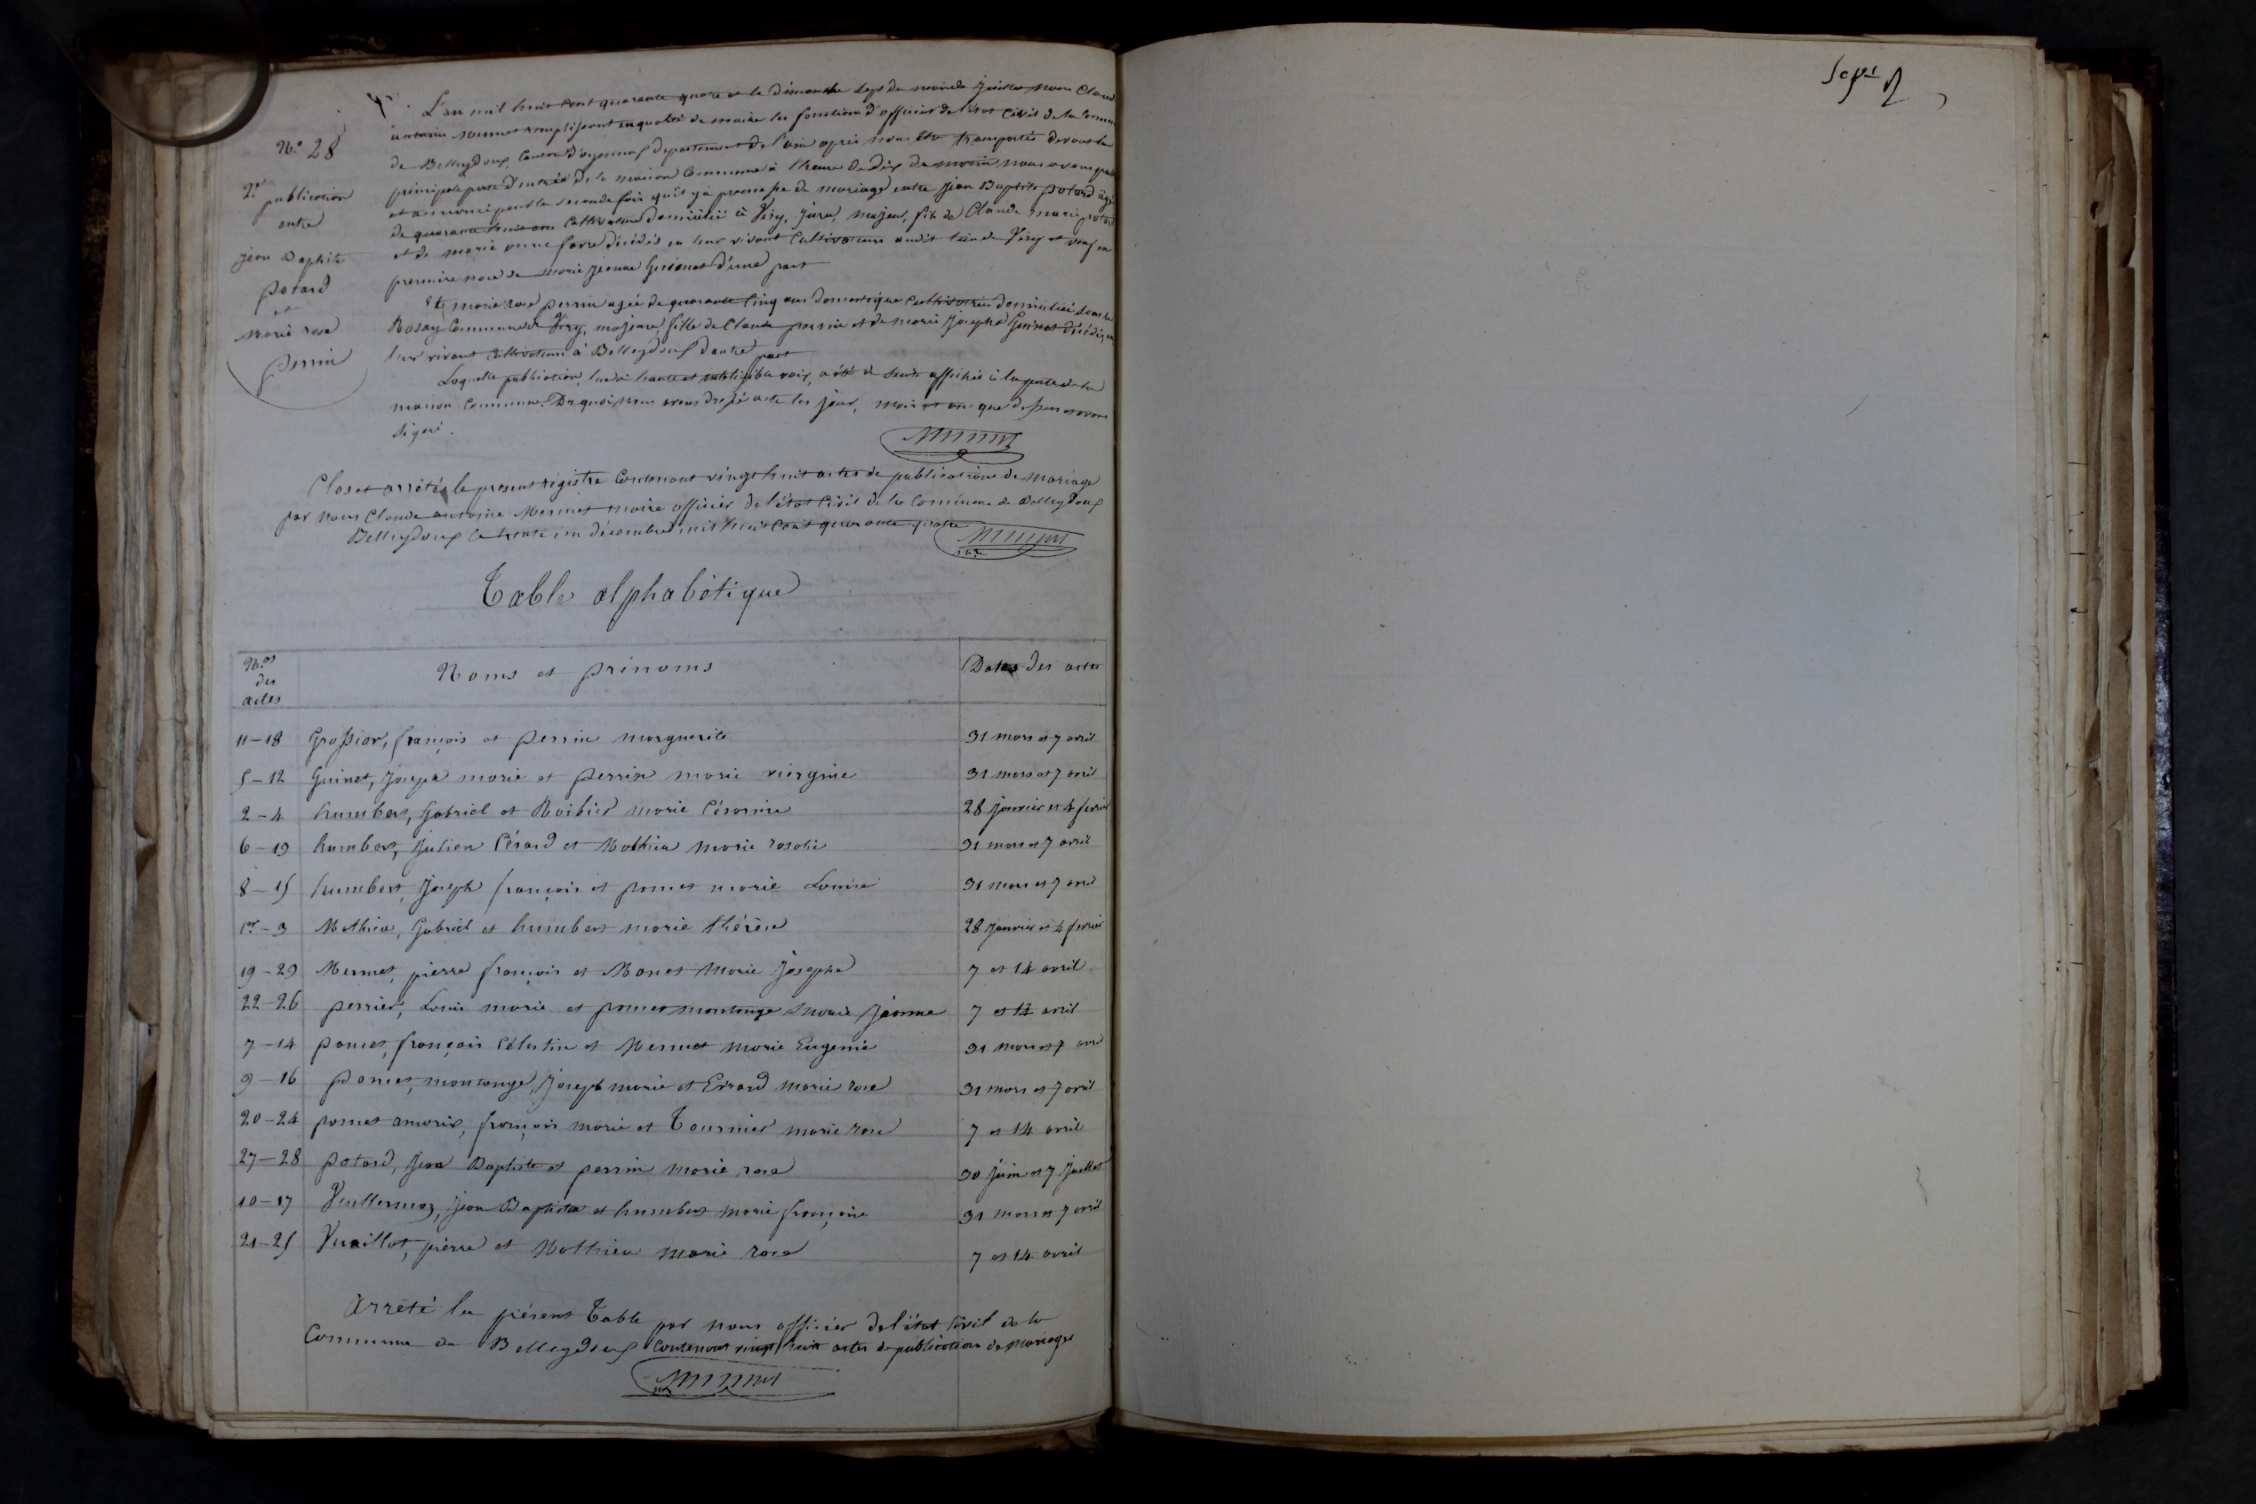 L'an mil huit cent quarante quatre et le dimanche sept du mois de Juillet nous Claude
antoine mermet remplissant en qualité de maire les fonctions d'officier de l'état civil de la Commune
de Belleydoux, Canton d'oyonnax département de l'ain après nous être transportés devant la
principale porte d'entrée de la maison Commune à l'heure de dix du matin nous avons publié
et annoncé pour la seconde fois qu'il y a promesse de mariage entre Jean Baptiste potard âgé
de quarante huit ans Cultivateur domicilié à Viry, Jura, majeur, fils de Claude marie potard
et de marie anne favre décédés en leur vivant Cultivateurs audit lieu de Viry et veuf en
première noce de marie Jeanne Guinet d'une part
Et marie rose perrin agée de quarante cinq ans domestique Cultivatrice domiciliée
Rosay Commune de Viry, majeure, fille de Claude perrin et de marie Josephe Guinet décédés en
leur vivant Cultivateurs à Belleydoux d'autre part
Laquelle publication, lue à haute et intelligible voix, a été de suite affichée à la porte de la
maison Commune. De quoi nous avons dressé acte les jour, mois et an que dessus et avons
signé.
Mermet
N.º 28
2.e
publication
entre
jean Baptiste
potard
et
Marie rose
perrin
Clos et arrêté le présent régistre Contenant vingt huit actes de publications de mariage
par Nous Claude antoine Mermet maire officier de l'état Civil de la Commune de Belleydoux
Belleydoux le trente un décembre mil huit Cent quarante quatre
Mermet
Table alphabétique
N.os des actes
Noms et prénoms
Dates des actes
11-18 Grossiord, françois et perrin marguerite 31 mars et 7 avril
5-12 Guinet, Joseph marie et perrin marie virginie 31 mars et 7 avril
2-4 humbert, Gabriel et marie Césarine 28 Janvier et 4 fevrier
6-13 humbert, Julien Cérard et Mathieu marie rosalie 31 mars et 7 avril
8-15 humbert, Joseph françois et poncet marie Louise 31 mars et 7 avril
1er-3 Mathieu, Gabriel et humbert marie thérèse 28 Janvier et 4 fevrier
19-23 Mermet, pierre françois et Monet Marie Josephe 7 et 14 avril
22-26 perrier, Louis marie et poncet montange Marie Jeanne 7 et 14 avril
7-14 poncet, françois Célestin et Mermet Marie Eugenie 31 mars et 7 avril
9-16 poncet montange, Joseph marie et Evrard marie rose 31 mars et 7 avril
20-24 poncet amoris, françois marie et Tournier marie rose 7 et 14 avril
27-28 potard, Jean Baptiste et perrin marie rose 30 Juin et 7 Juillet
10-17 Vuillermoz, Jean Baptiste et humbert marie françoise 31 mars et 7 avril
21-25 Vuaillat, pierre et Mathieu marie rose 7 et 14 avril
Arrêté la présent Table par nous officier de l'état Civil de la
Commune de Belleydoux Contenant vingt huit actes de publications de mariage
Mermet
Sept